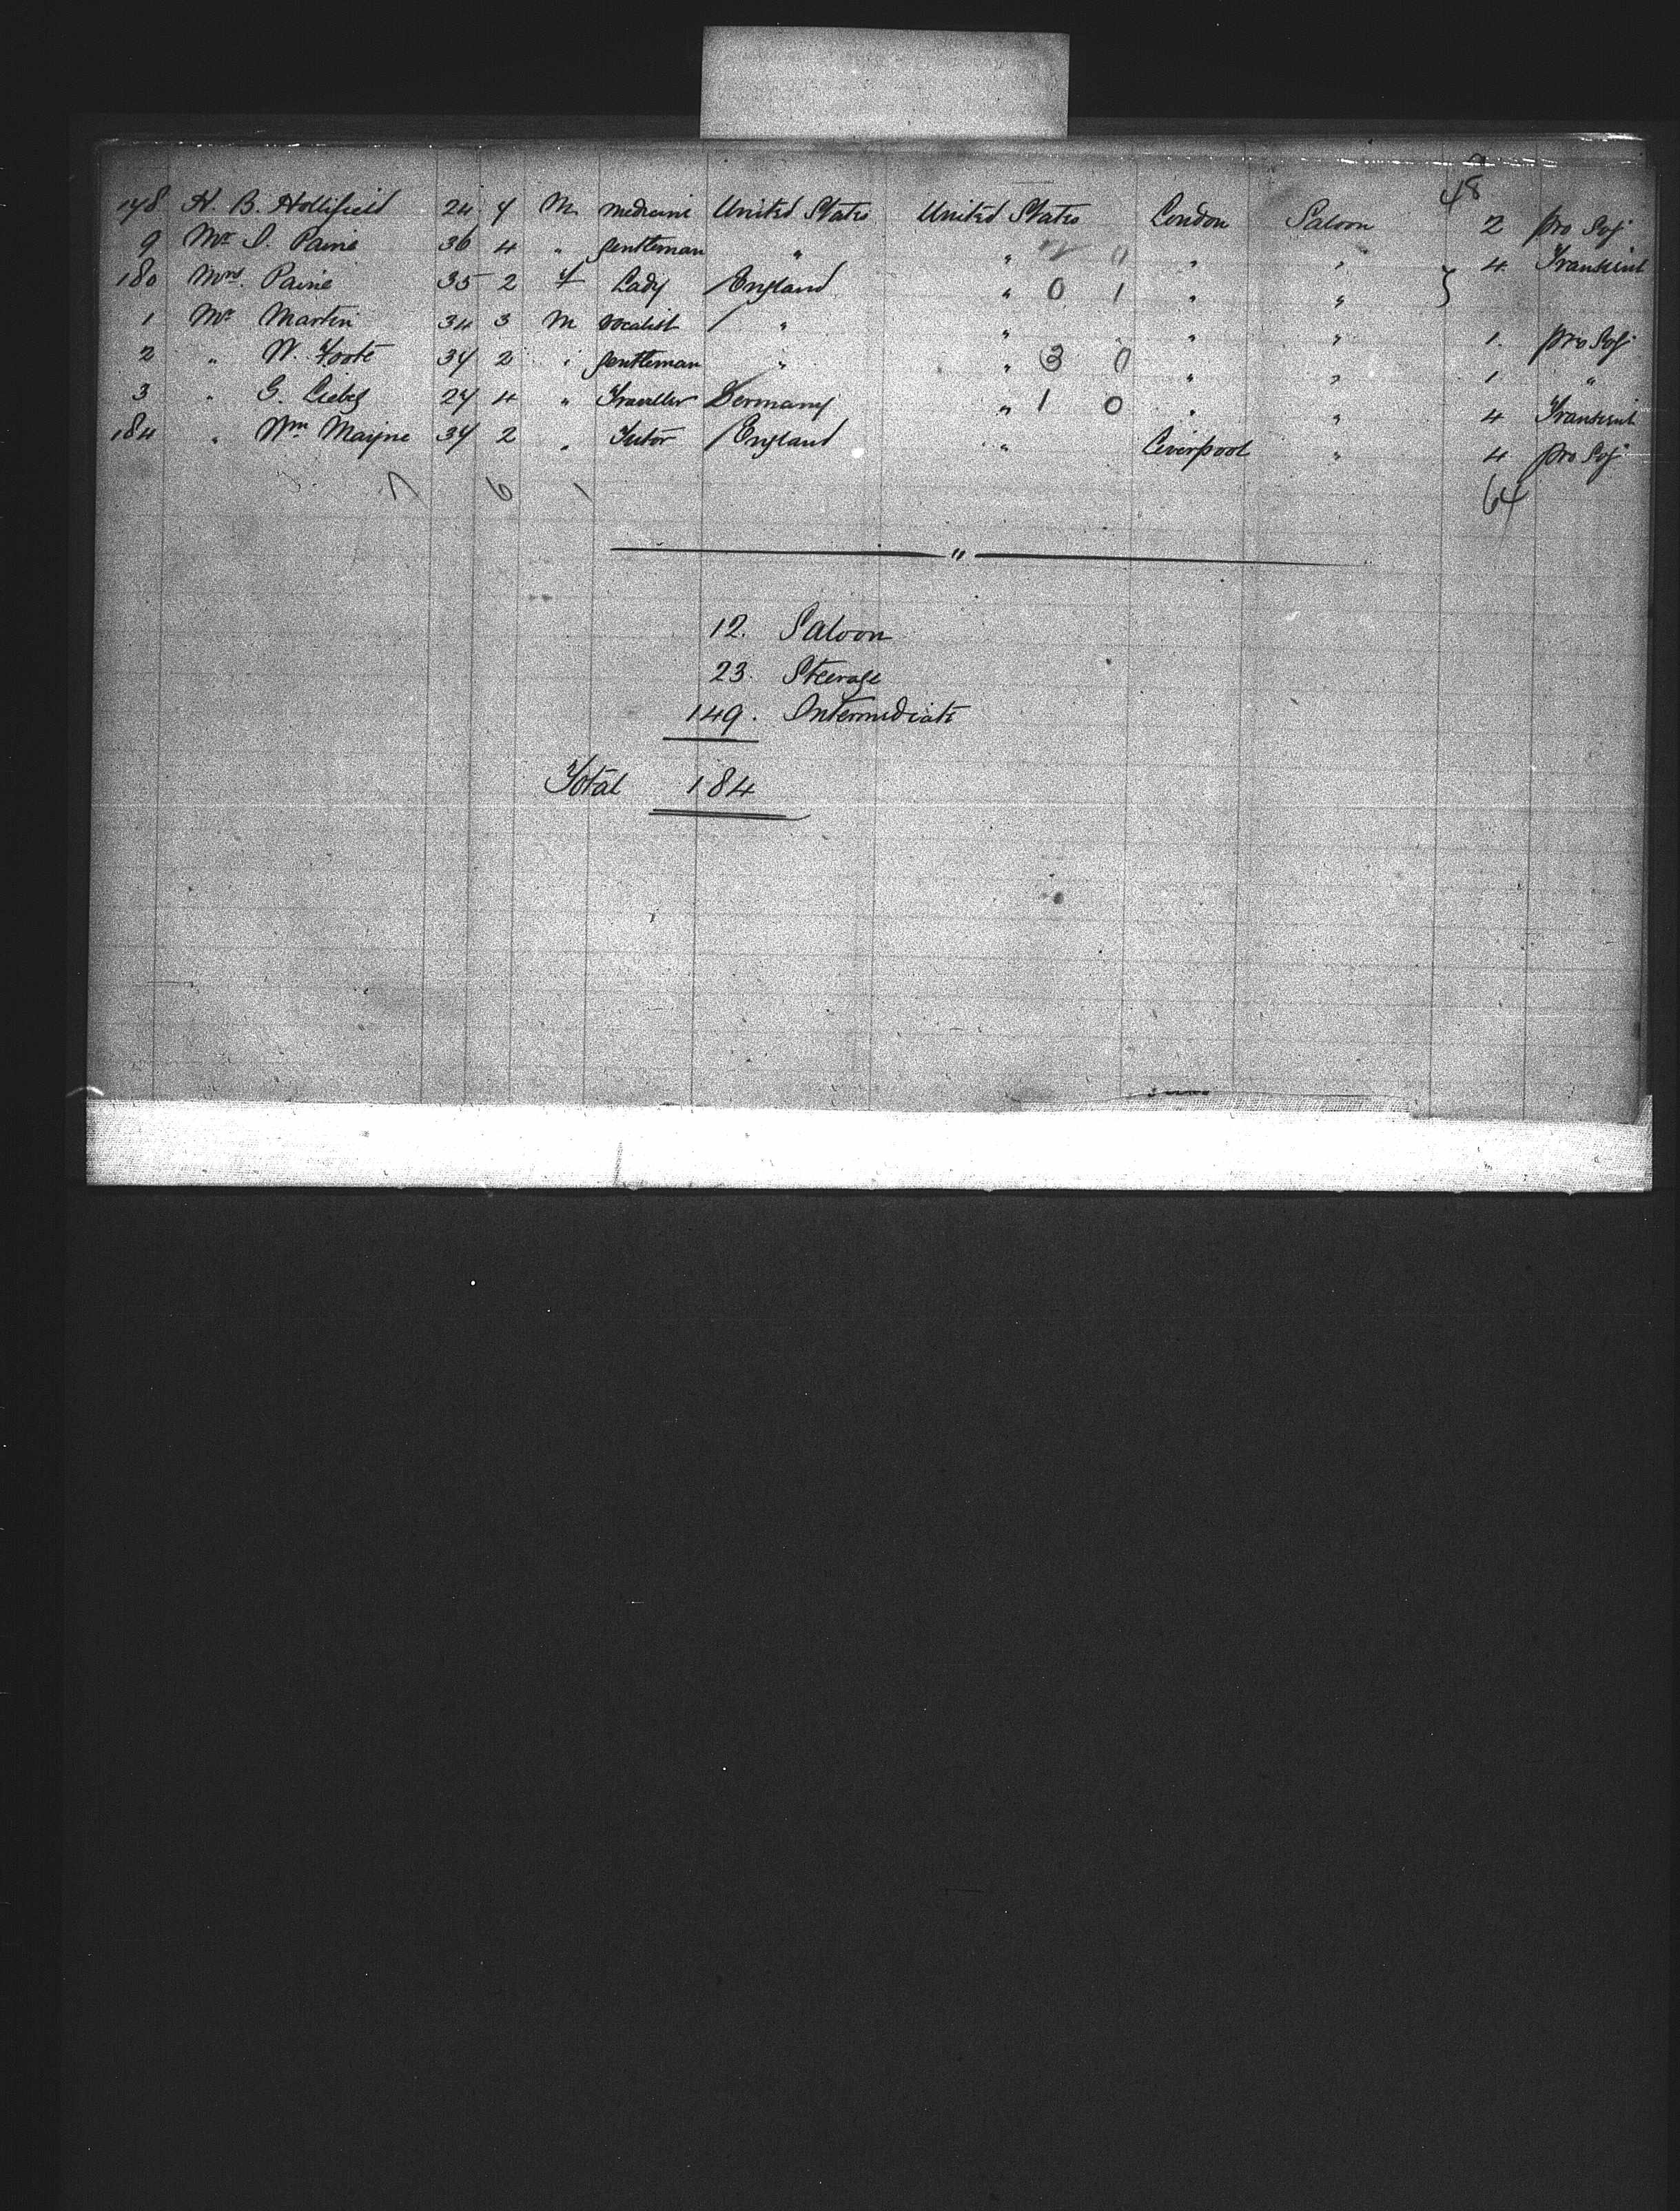 48
178 H. B. Hollifield 24 7 M medicine United States United States London Saloon 2 Pro Soj
9 Mr S. Paine 36 4 " gentleman " " 2 0 " " 4 Transient
180 Mrs. Paine 35 2 F Lady England " 0 1 " " }
1 Mr Martin 34 3 M vocalist " " " " 1. pro Soj
2 " W. Foote 37 2 " gentleman " " 3 0 " " 1 "
3 " G. 27 4 " Traveller Germany " 1 0 " " 4 Transient
184 " Wm Mayne 37 2 " Tutor England " Liverpool " 4 pro Soj
7 6 1 64
"
12. Saloon
23. Steerage
149. Intermediate
Total 184